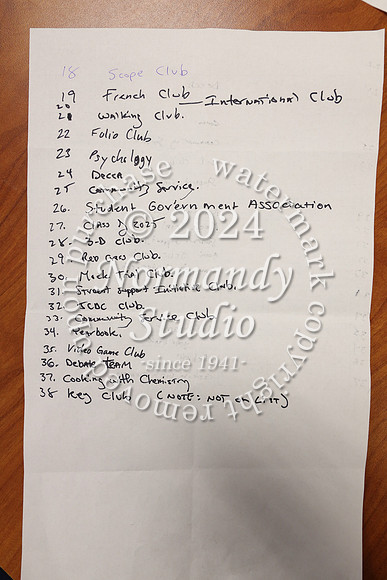 18 Scope Club
19 French Club
20 — International Club
21 Walking Club.
22 Folio Club
23 Psychology
24 Decca
25 Community Service.
26. Student Government Association
27. Class of 2025
28. 3-D Club.
29. Club.
30. Mock Trial Club.
31. Student Support Initiative Club.
32 Club.
33. Community Service Club
34. Yearbook.
35. Video Game Club
36. Debate TEAM
37. Cooking with Chemistry
38 Key Club (NOTE: NOT on LIST)
purchase watermark
© 2024
Normandy
Studio
-since 1941-
to remove copyright